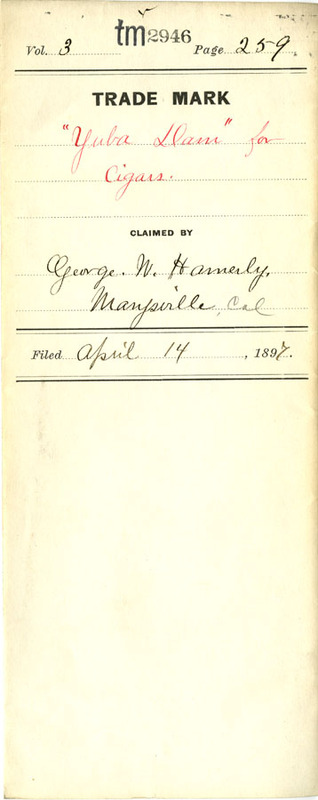 tm 2946
Vol. 3 Page 259
TRADE MARK
"Yuba Dam" for
Cigars.
CLAIMED BY
George. W. Hamerly,
Marysville, Cal
Filed April 14, 1897.